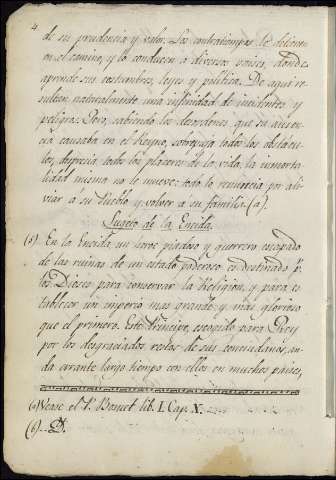 4
de su prudencia y valor. Las contratiempos le detienen
en el camino, y lo conducen a diversos paises, donde
aprende sus costumbres, leyes y politica. De aqui re-
sultan naturalmente una infinidad de incidentes y
peligros. Pero, sabiendo los desordenes que su ausen-
cia causaba en el Reyno, sobrepuja todos los obstacu-
los, desprecia todos los placeres de la vida, la inmorta-
lidad misma no le mueve: todo lo renuncia por ali-
viar a su Pueblo y volver a su familia. (a).
Sugeto de la Eneida.
(b) En la Eneida un heroe piadoso y guerrero escapado
de las ruinas de un estado poderoso es destinado pr.
los Dioses para conservar la Religion, y para es-
tablecer un imperio mas grande y mas glorioso
que el primero. Este Principe, escogido para Rey
por los desgraciados restos de sus conciudadanos, an-
da errante largo tiempo con ellos en muchos paises,
(a) Vease el P. Bosuet lib. I. Cap. X.
(b) D.